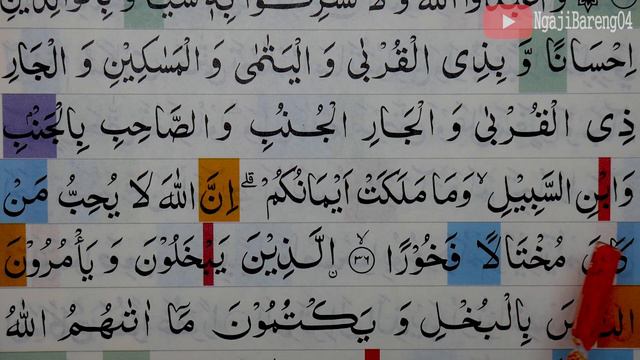 NgajiBareng04
وَاعْبُدُوا اللّٰهَ وَلَا تُشْرِكُوْا بِهٖ شَيْـًٔا وَّبِالْوَالِدَيْنِ
اِحْسَانًا وَّ بِذِى الْقُرْبٰى وَ الْيَتٰمٰى وَ الْمَسٰكِيْنِ وَ الْجَارِ
ذِى الْقُرْبٰى وَ الْجَارِ الْجُنُبِ وَ الصَّاحِبِ بِالْجَنْۢبِ
وَابْنِ السَّبِيْلِ ۙ وَمَا مَلَكَتْ اَيْمَانُكُمْ ۗ اِنَّ اللّٰهَ لَا يُحِبُّ مَنْ
كَانَ مُخْتَالًا فَخُوْرًا ۙ ٣٦ الَّذِيْنَ يَبْخَلُوْنَ وَ يَأْمُرُوْنَ
النَّاسَ بِالْبُخْلِ وَ يَكْتُمُوْنَ مَآ اٰتٰىهُمُ اللّٰهُ